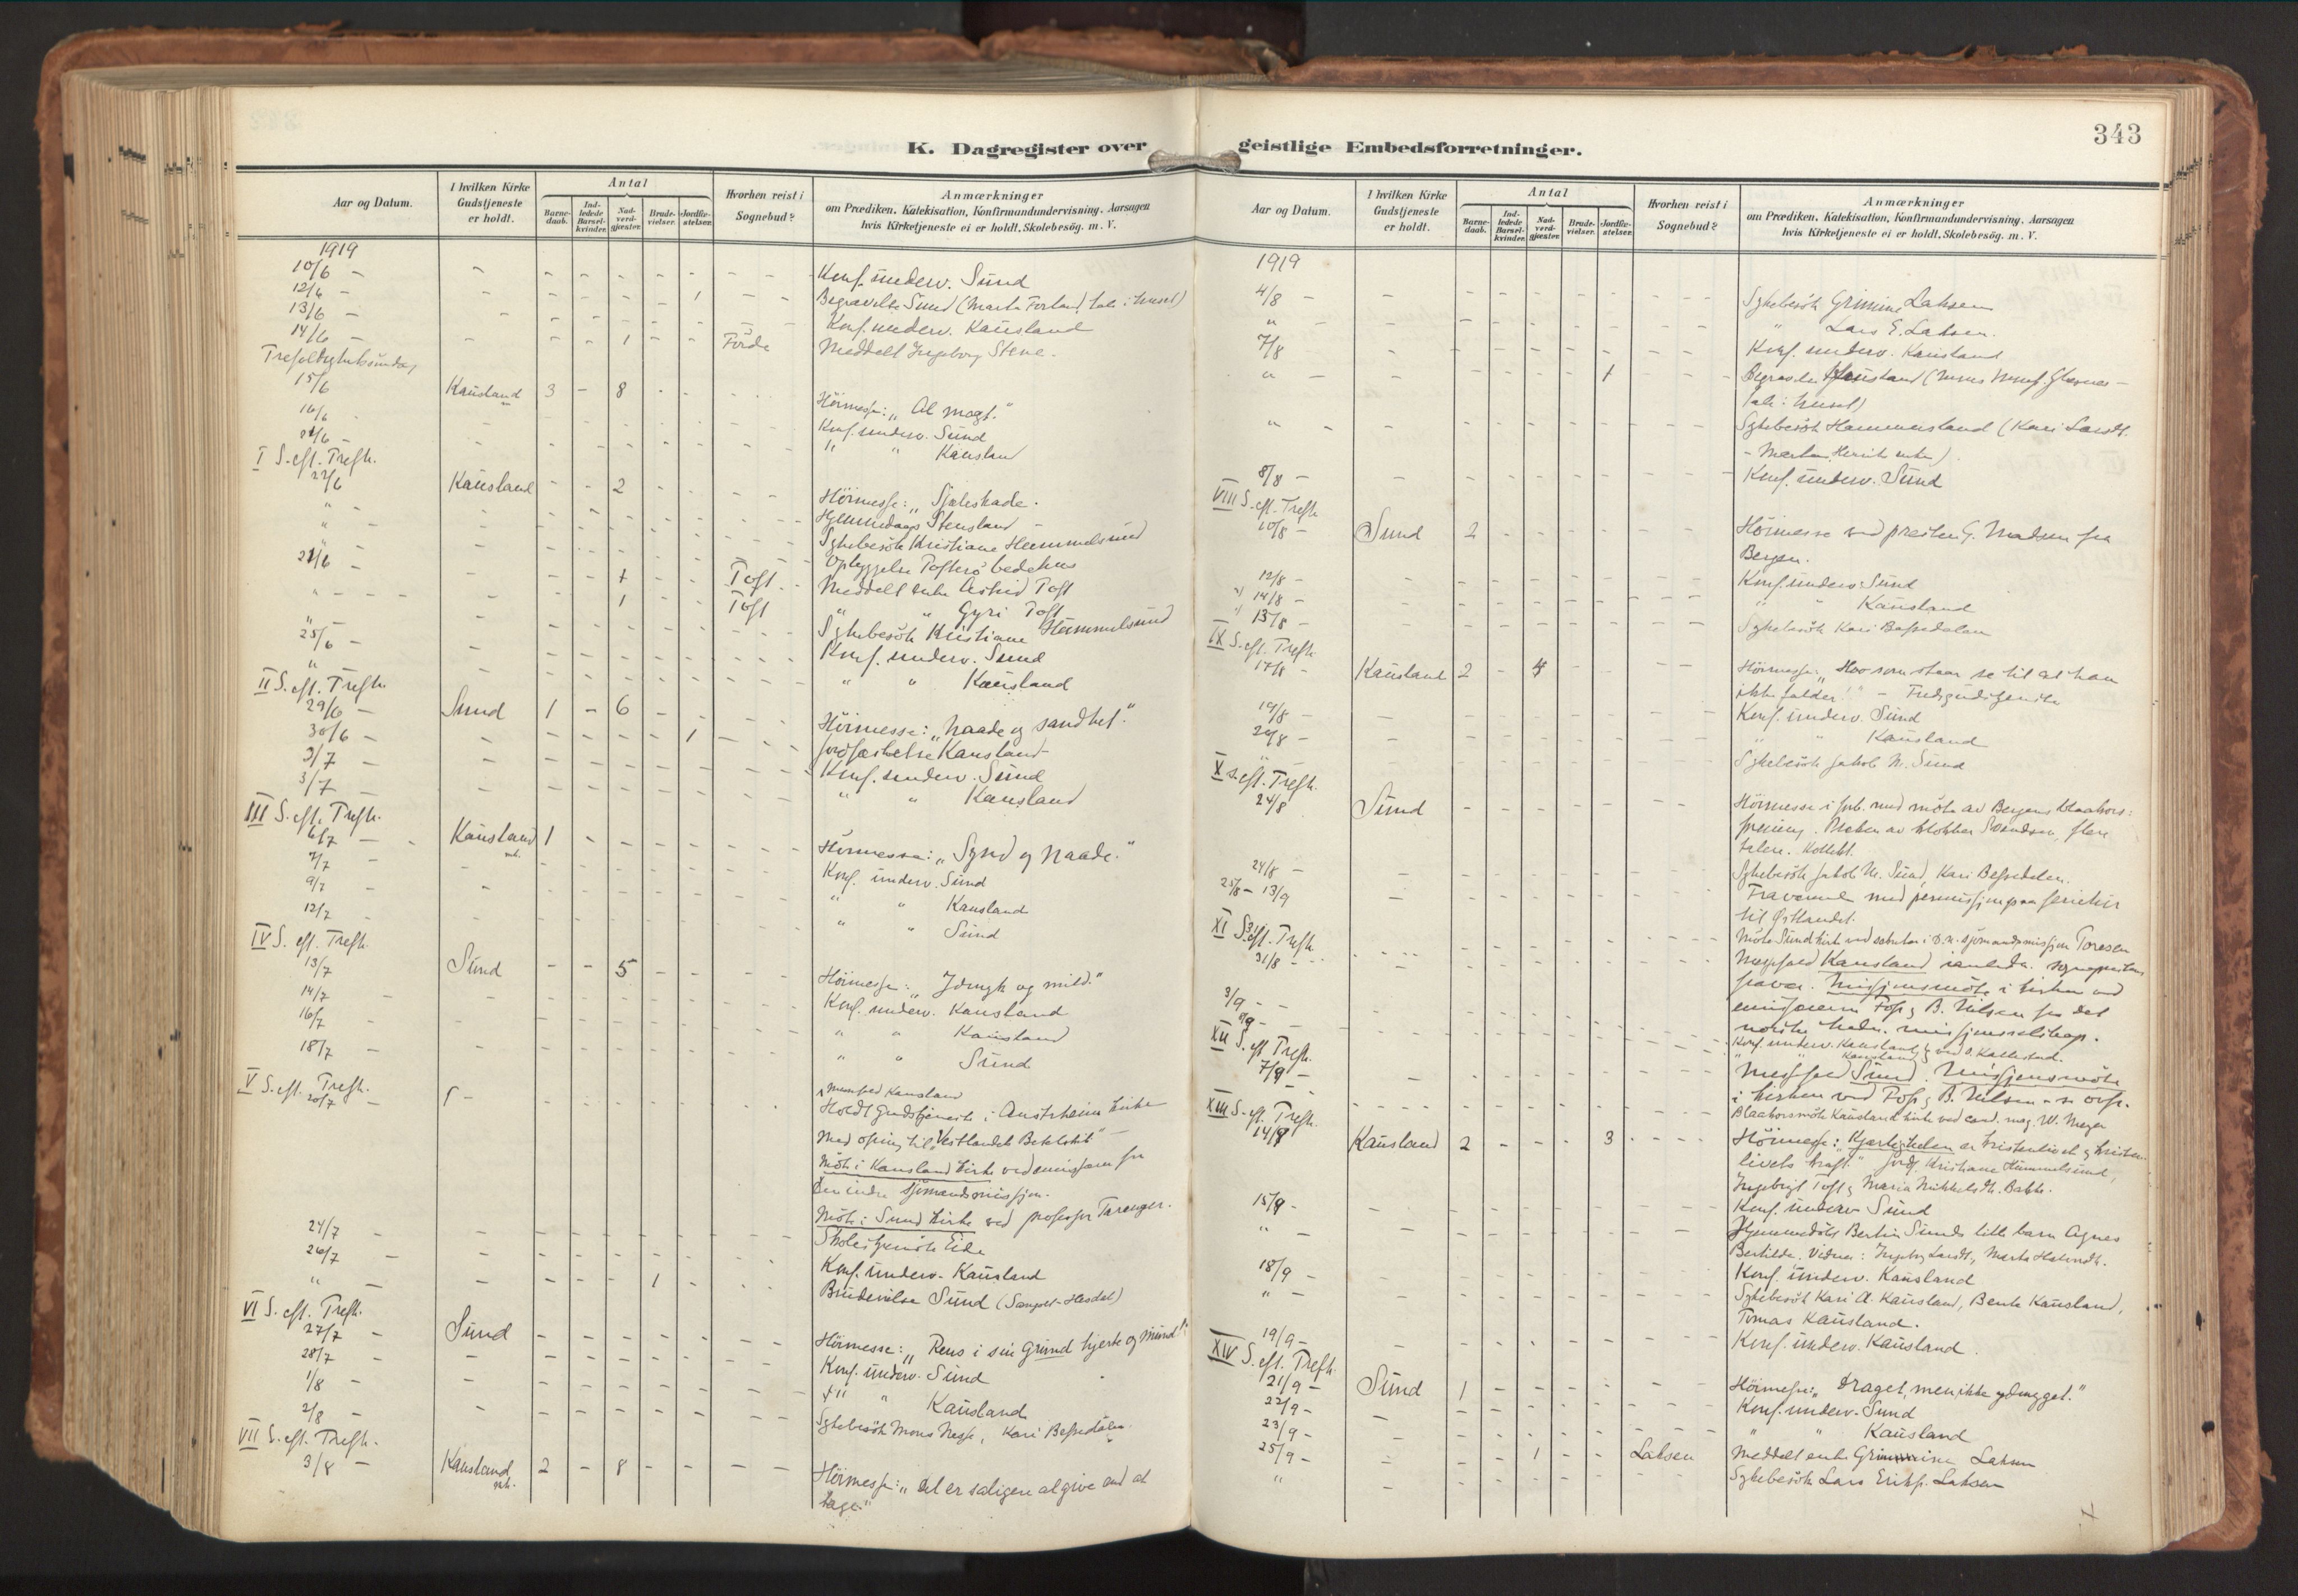 K. Dagregister over
Aar og Datum.
I hvilken Kirke Gudstjeneste er holdt.
Antal
Barne-daab.
Ind-ledede Barsel-kvinder.
Nad-verd-gjæster.
Brude-vielser.
Jordfæ-stelser.
Hvorhen reist i Sognebud?
Anmærkninger
om Prædiken, Katekisation, Konfirmandundervisning, Aarsagen
hvis Kirketjeneste ei er holdt, Skolebesøg. m. V.
1919
10/6 - Konf. underv. Sund
12/6 - 1 Begravelse Sund (Marta Forland, tale i huset)
13/6 - Konf. underv. Kausland
14/6 - 1 Förde Meddelt Ingeborg Stene.
Trefoldighetssöndag
15/6 Kausland 3 - 8 Höimesse: "Al magt."
16/6 Konf. underv. Sund
21/6 - " " Kausland
I S. eft. Trefh.
22/6 Kausland - - 2 Höimesse: "Sjæleskade.
" - Hjemmedaap Stensland
" - Sykebesök Kristiane Hummelsund
" - Opbyggelse Tofterö bedehus
24/6 - 1 Toft Meddelt enke Astrid Toft
" - 1 Toft " " Gyri Toft
" - Sykebesök Kristiane Hummelsund
25/6 - Konf. underv. Sund
" " " Kausland
II S. eft. Trefh.
29/6 - Sund 1 - 6 Höimesse: "Naade og sandhet."
30/6 - 1 Jordfæstelse Kausland
3/7 - Konf. underv. Sund
3/7 - " " Kausland
III S. eft. Trefh.
6/7 - Kausland 1 Höimesse: "Synd og Naade."
7/7 - Konf. underv. Sund
9/7 - " " Kausland
12/7 " " Sund
IV S. eft. Trefh.
13/7 Sund - - 5 Höimesse: "Ydmyk og mild."
14/7 - Konf. underv. Kausland
16/7 - " " Kausland
18/7 - " " Sund
V S. eft. Trefh.
20/7 - Messefald Kausland
Holdt gudstjeneste i Austrheim kirke
Med ofring til "Vestlandets Bekkelskit"
Möte i Kausland kirke ved emissæren fra
Den indre sjömandsmissjon.
Möte i Sund kirke ved professor Taranger.
24/7 - Skolestyremöte Eide
26/7 - Konf. underv. Kausland
" - 1 Brudevielse Sund
VI S. eft. Trefh.
27/7 - Sund Höimesse: "Rens i sin grund hjerte og mund!"
28/7 - Konf. underv. Sund
1/8 - " " Kausland
2/8 - Sykebesök Mons Nesse, Kari Bessedalen.
VII S. eft. Trefh.
3/8 - Kausland 2 - 8 Höimesse: "Det er saligere at give end at
tage."
geistlige Embedsforretninger.
343
Aar og Datum.
I hvilken Kirke Gudstjeneste er holdt.
Antal
Barne-daab.
Ind-ledede Barsel-kvinder.
Nad-verd-gjæster.
Brude-vielser.
Jordfæ-stelser.
Hvorhen reist i Sognebud?
Anmærkninger
om Prædiken, Katekisation, Konfirmandundervisning, Aarsagen
hvis Kirketjeneste ei er holdt, Skolebesøg. m. V.
1919
4/8 - Sykebesök Grimine Laksen
" - " Lars E. Laksen.
7/8 Konf. underv. Kausland
" - 1 Begravelse Kausland (Mons Glesnes -
tale i huset)
" - Sykebesök Hammersland (Kari Larsdt.
- Marta, Henrik enke)
8/8 - Konf. underv. Sund
VIII S. eft. Trefh.
10/8 - Sund 2 Höimesse ved presten G. Madsen fra
Bergen.
12/8 - Konf. underv. Sund
14/8 - " " Kausland
13/8 - Sykebesök Kari Bessedalen
IX S. eft. Trefh.
17/8 - Kausland 2 - 4 Höimesse: "Hvo som staar se til at han
ikke falder!" -
19/8 - Konf. underv. Sund
20/8 - " " Kausland
" Sykebesök Jakob N. Sund
X S. eft. Trefh.
24/8 Sund Höimesse i forb. med möte av Bergens blaakors:
forening. Preken av klokker Svendsen, flere
talere. Kollekt.
24/8 - Sykebesök Jakob N. Sund, Kari Bessedalen.
25/8 - 13/9 Fraværende med permissjon paa ferietur
til Østlandet.
XI S. eft. Trefh. Möte Sund kirke ved sekretær i D. n. sjömandsmissjon Toresen
31/8 - Messefald Kausland sogneprestens
fravær. Missjonsmöte i kirken ved
emissærene Foss og B. Nilsen fra det
norske hedn. missjonsselskap.
3/9 - Konf. underv. Kausland } ved O. Kallestad.
9/9 - " " Kausland
XII S. eft. Trefh.
7/9 - Messefald Sund. Missjonsmöte
i kirken ved Foss og B. Nilsen - se ovf.
Blaakorsmöte Kausland kirke ved cand. mag. W. Meyer
XIII S. eft. Trefh.
14/9 Kausland 2 - - - 3 Höimesse: "Kjærligheten er kristenlivet og kristen-
livets kraft." Jordf. Kristiane Hummelsund,
Ingebrigt Toft og Maria Mikkelsdt. Bakke.
15/9 - Konf. underv. Sund
" - Hjemmedöpt Bertin Sunds lille barn Agnes
Bertilde. Vidner: Ingeborg Larsdt., Marta Halvndt.
18/9 - Konf. underv. Kausland
" - Sykebesök Kari A. Kausland, Bente Kausland,
Tomas Kausland.
19/9 - Konf. underv. Kausland.
XIV S. eft. Trefh.
21/9 - Sund 1 Höimesse: "Draget, men ikke ydmyget."
22/9 - Konf. underv. Sund
23/9 - " " Kausland
25/9 - 1 Laksen Meddelt enke Grimine Laksen
" Sykebesök Lars Eriks. Laksen